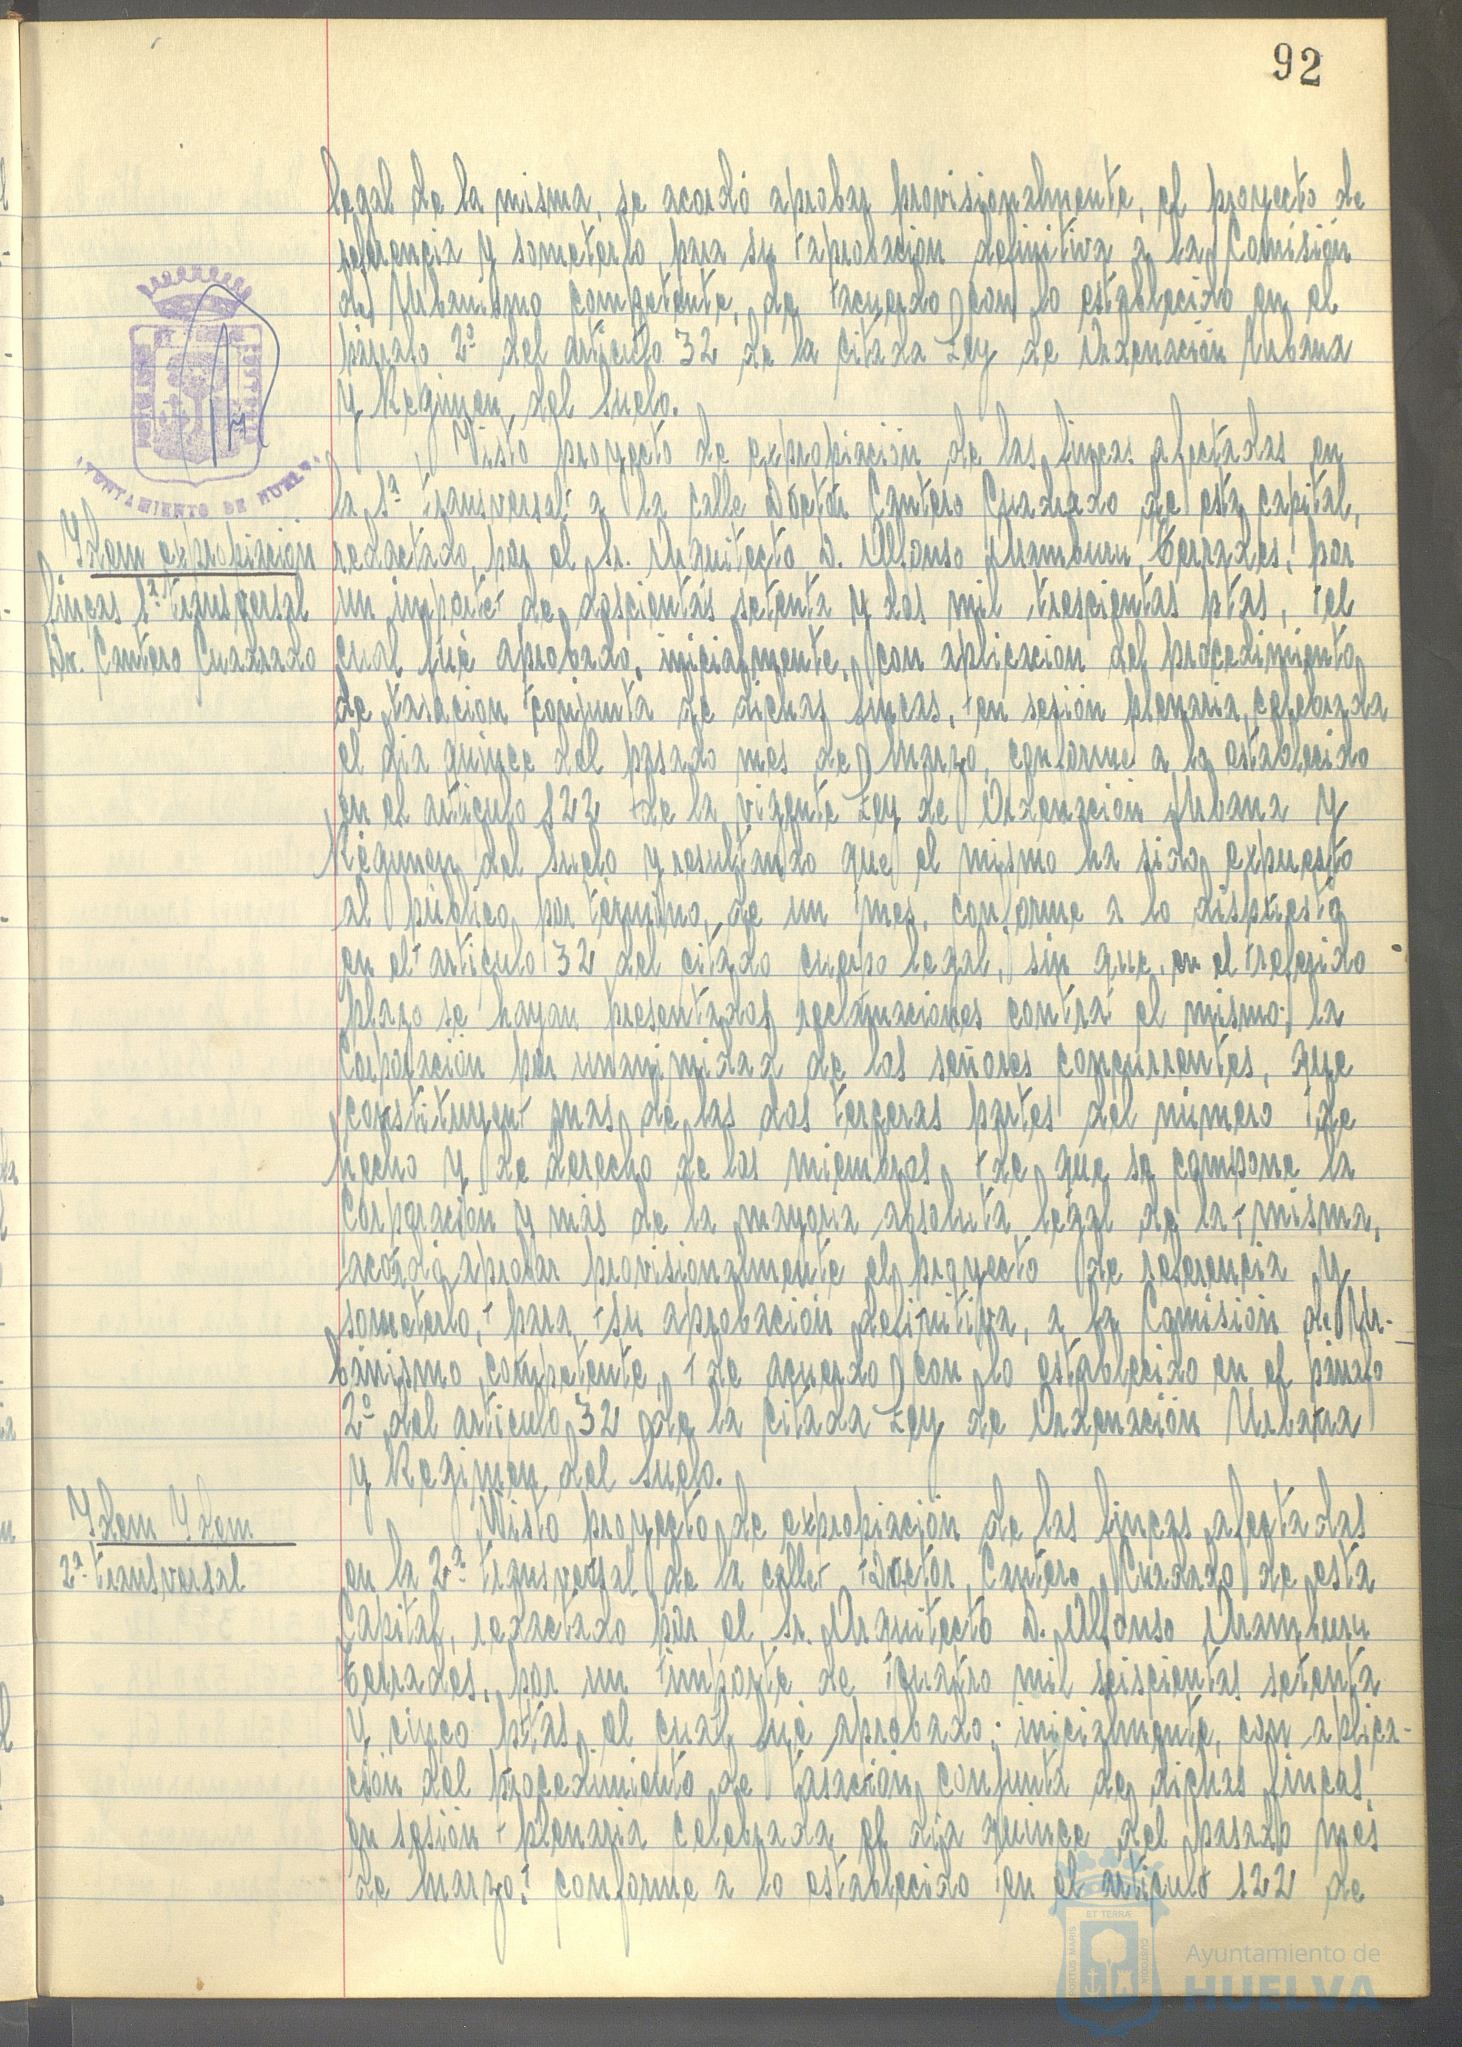 92
legal de la misma, se acordó aprobar provisionalmente, el proyecto de
referencia y someterlo, para su aprobación definitiva a la Comisión
de Urbanismo competente, de acuerdo con lo establecido en el
párrafo 2º del artículo 32 de la citada Ley de Ordenación Urbana
y Regimen del Suelo.
Visto proyecto de expropiación de las fincas afectadas en
la 1ª transversal a la calle Doctor Cantero Cuadrado de esta capital,
Ydem expropiación
fincas 1ª transversal
Dr. Cantero Cuadrado
redactado por el Sr. Arquitecto D. Alfonso Aramburu Terrades, por
un importe de doscientas setenta y dos mil trescientas ptas, el
cual fué aprobado, inicialmente, con aplicacion del procedimiento
de tasación conjunta de dichas fincas, en sesión plenaria, celebrada
el dia quince del pasado mes de Marzo, conforme a lo establecido
en el artículo 122 de la vigente Ley de Ordenación Urbana y
Régimen del Suelo y resultando que el mismo ha sido expuesto
al público por término de un mes, conforme a lo dispuesto
en el artículo 32 del citado cuerpo legal, sin que, en el referido
plazo se hayan presentados reclamaciones contra el mismo; la
Corporación por unanimidad de los señores concurrentes, que
constituyen mas de las dos terceras partes del número de
hecho y de derecho de los miembros de que se compone la
Corporación y más de la mayoría absoluta legal de la misma,
acordó aprobar provisionalmente el proyecto de referencia y
someterlo, para su aprobación definitiva, a la Comisión de Ur-
banismo competente, de acuerdo con lo establecido en el párrafo
2º del artículo 32 de la citada Ley de Ordenación Urbana
y Regimen del Suelo.
Ydem Ydem
2ª transversal
Visto proyecto de expropiación de las fincas afectadas
en la 2ª transversal de la calle Doctor Cantero Cuadrado de esta
Capital, redactado por el Sr. Arquitecto D. Alfonso Aramburu
Terrades, por un importe de cuatro mil seiscientas setenta
y cinco ptas, el cual fué aprobado, inicialmente, con aplica-
ción del procedimiento de tasación conjunta de dichas fincas,
en sesión plenaria celebrada el dia quince del pasado mes
de Marzo, conforme a lo establecido en el artículo 122 de
AYUNTAMIENTO DE HUELVA
PORTUS MARIS
ET TERRÆ
CUSTODIA
Ayuntamiento de
HUELVA